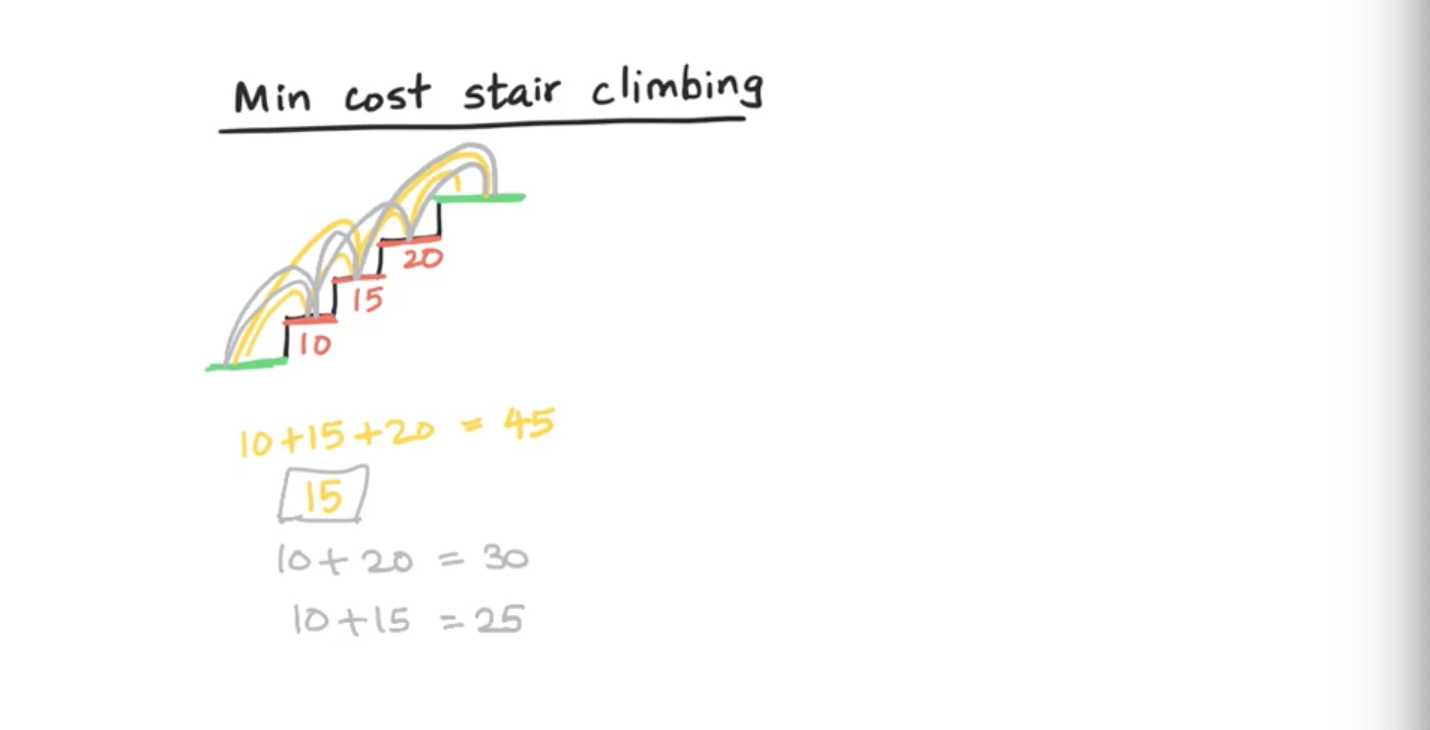 Min cost stair climbing
20
15
10
10+15+20 = 45
15
10+20 = 30
10+15 = 25